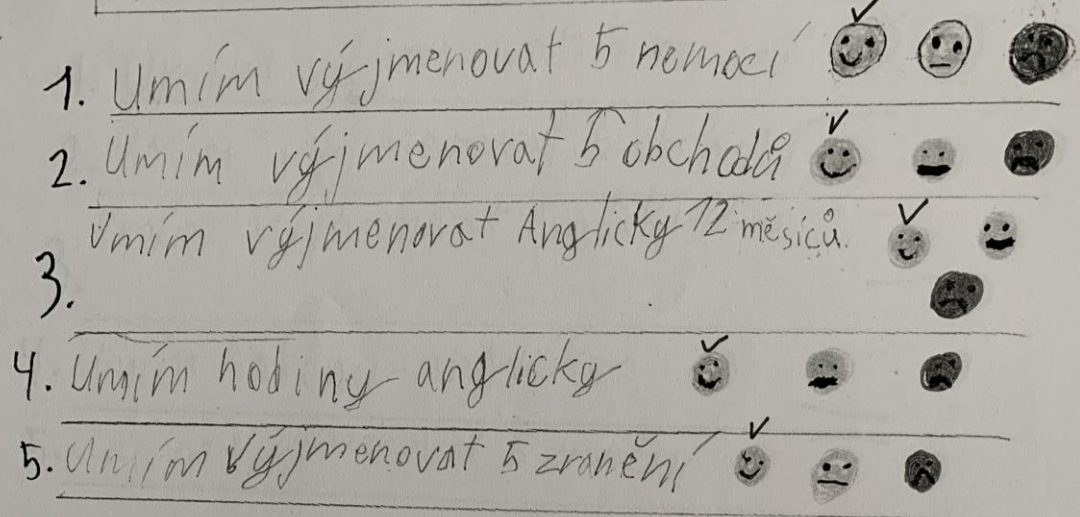 1. Umím výjmenovat 5 nemocí
2. Umím výjmenovat 5 obchodů
3. Umím výjmenovat Anglicky 12 měsíců.
4. Umím hodiny anglicky
5. Umím výjmenovat 5 zranění